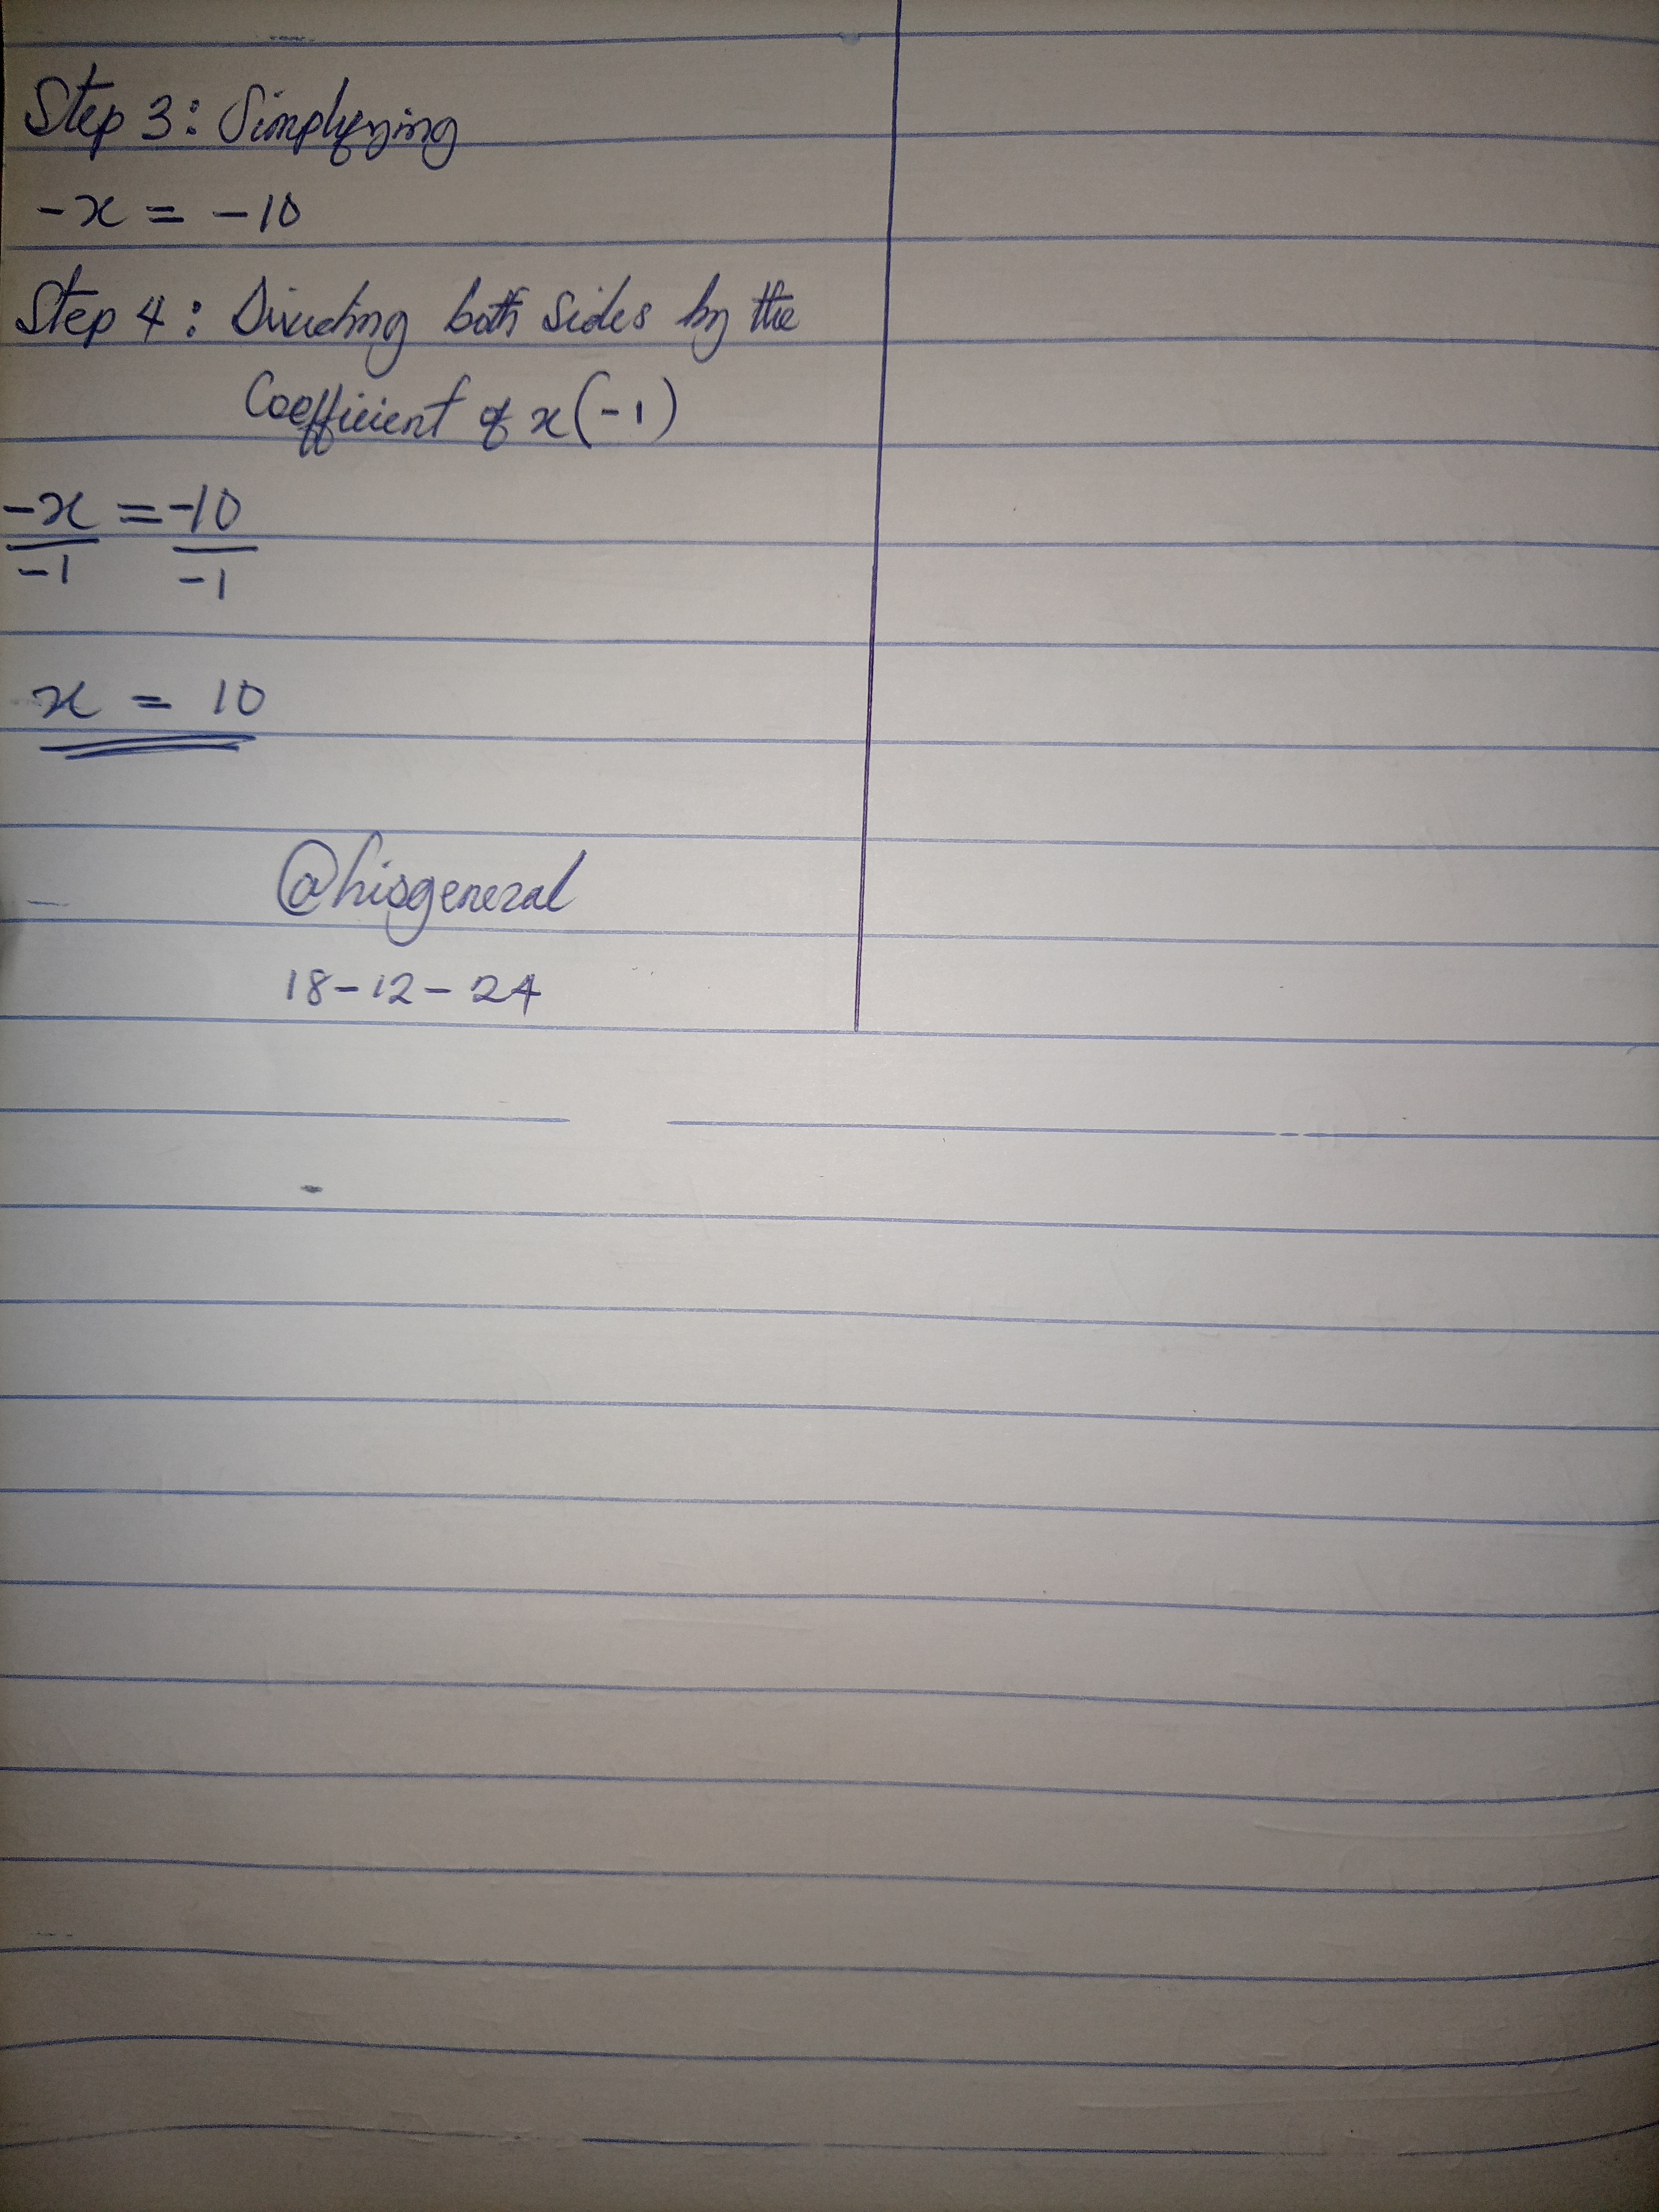 Step 3: Simplifying
-x = -10
Step 4: Dividing both sides by the
Coefficient of x (-1)
-x = -10
-1 -1
x = 10
@hisgeneral
18-12-24